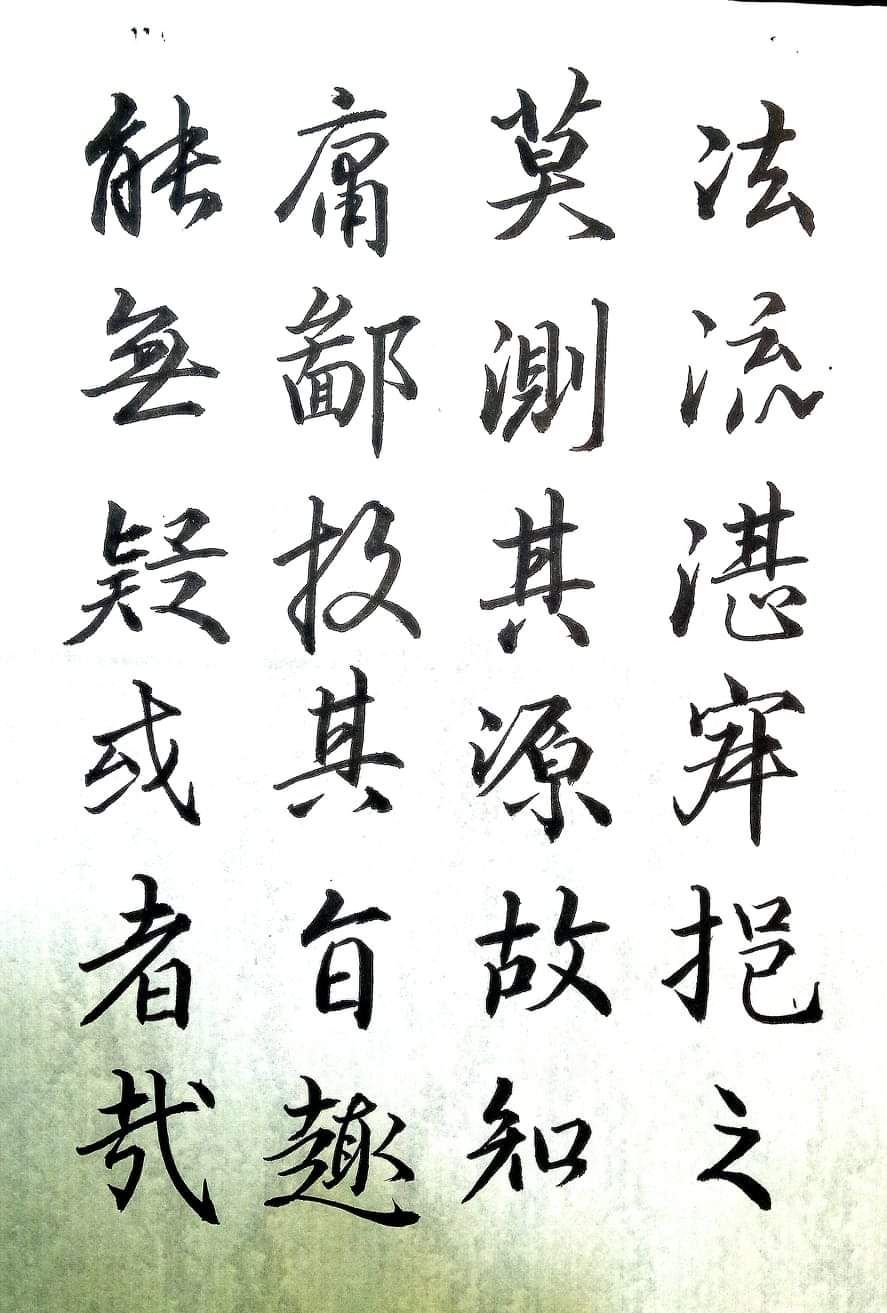 法流湛寂挹之
莫測其源故知
庸鄙投其旨趣
能無疑或者哉